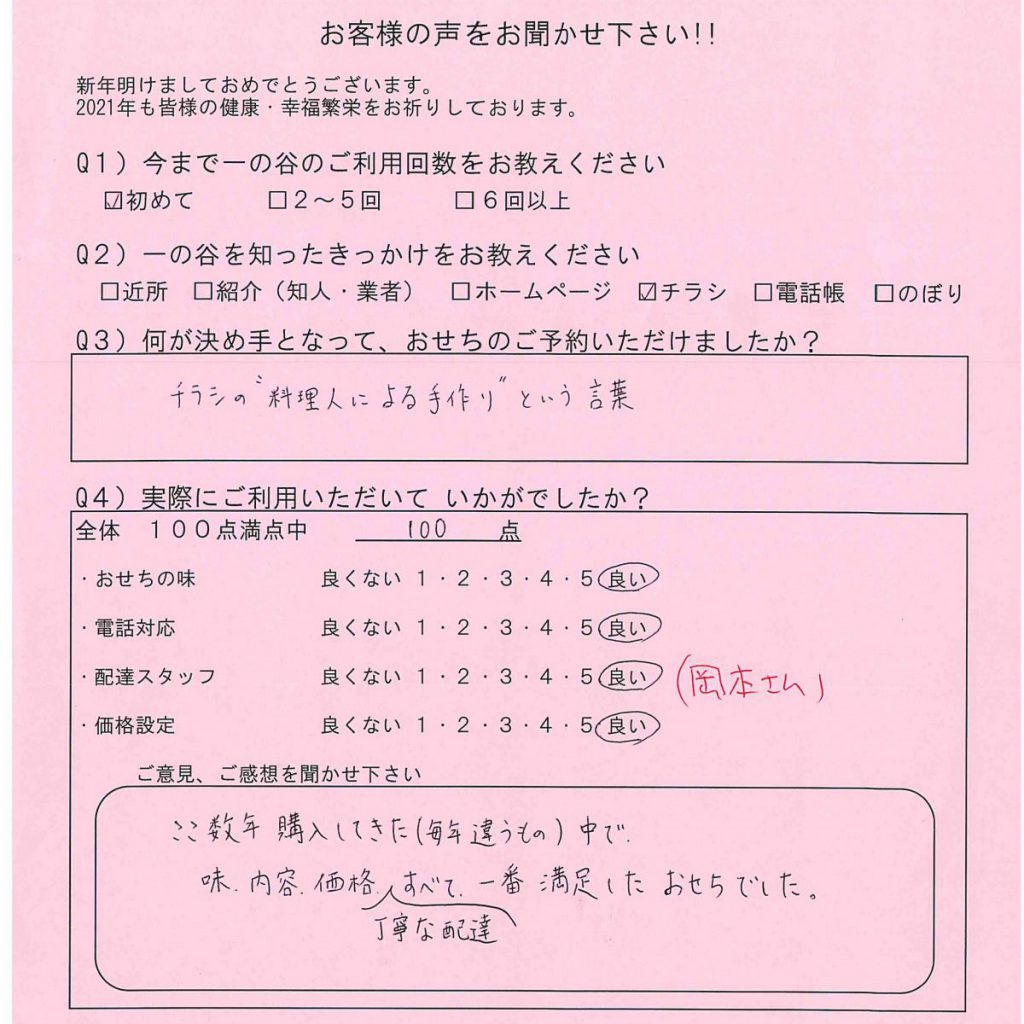 お客様の声をお聞かせ下さい!!
新年明けましておめでとうございます。
2021年も皆様の健康・幸福繁栄をお祈りしております。
Q1）今まで一の谷のご利用回数をお教えください
☑初めて　□2～5回　□6回以上
Q2）一の谷を知ったきっかけをお教えください
□近所　□紹介（知人・業者）　□ホームページ　☑チラシ　□電話帳　□のぼり
Q3）何が決め手となって、おせちのご予約いただけましたか？
チラシの"料理人による手作り"という言葉
Q4）実際にご利用いただいて いかがでしたか？
全体　100点満点中　100　点
・おせちの味　良くない 1・2・3・4・5 良い
・電話対応　良くない 1・2・3・4・5 良い
・配達スタッフ　良くない 1・2・3・4・5 良い （岡本さん）
・価格設定　良くない 1・2・3・4・5 良い
ご意見、ご感想を聞かせ下さい
ここ数年 購入してきた（毎年違うもの）中で、
味、内容、価格、すべて、一番 満足した おせちでした。
丁寧な配達